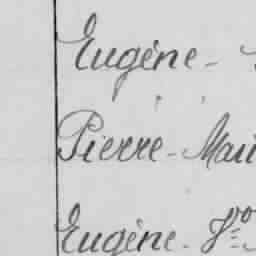 Eugène -
Pierre - Mari
Eugène -